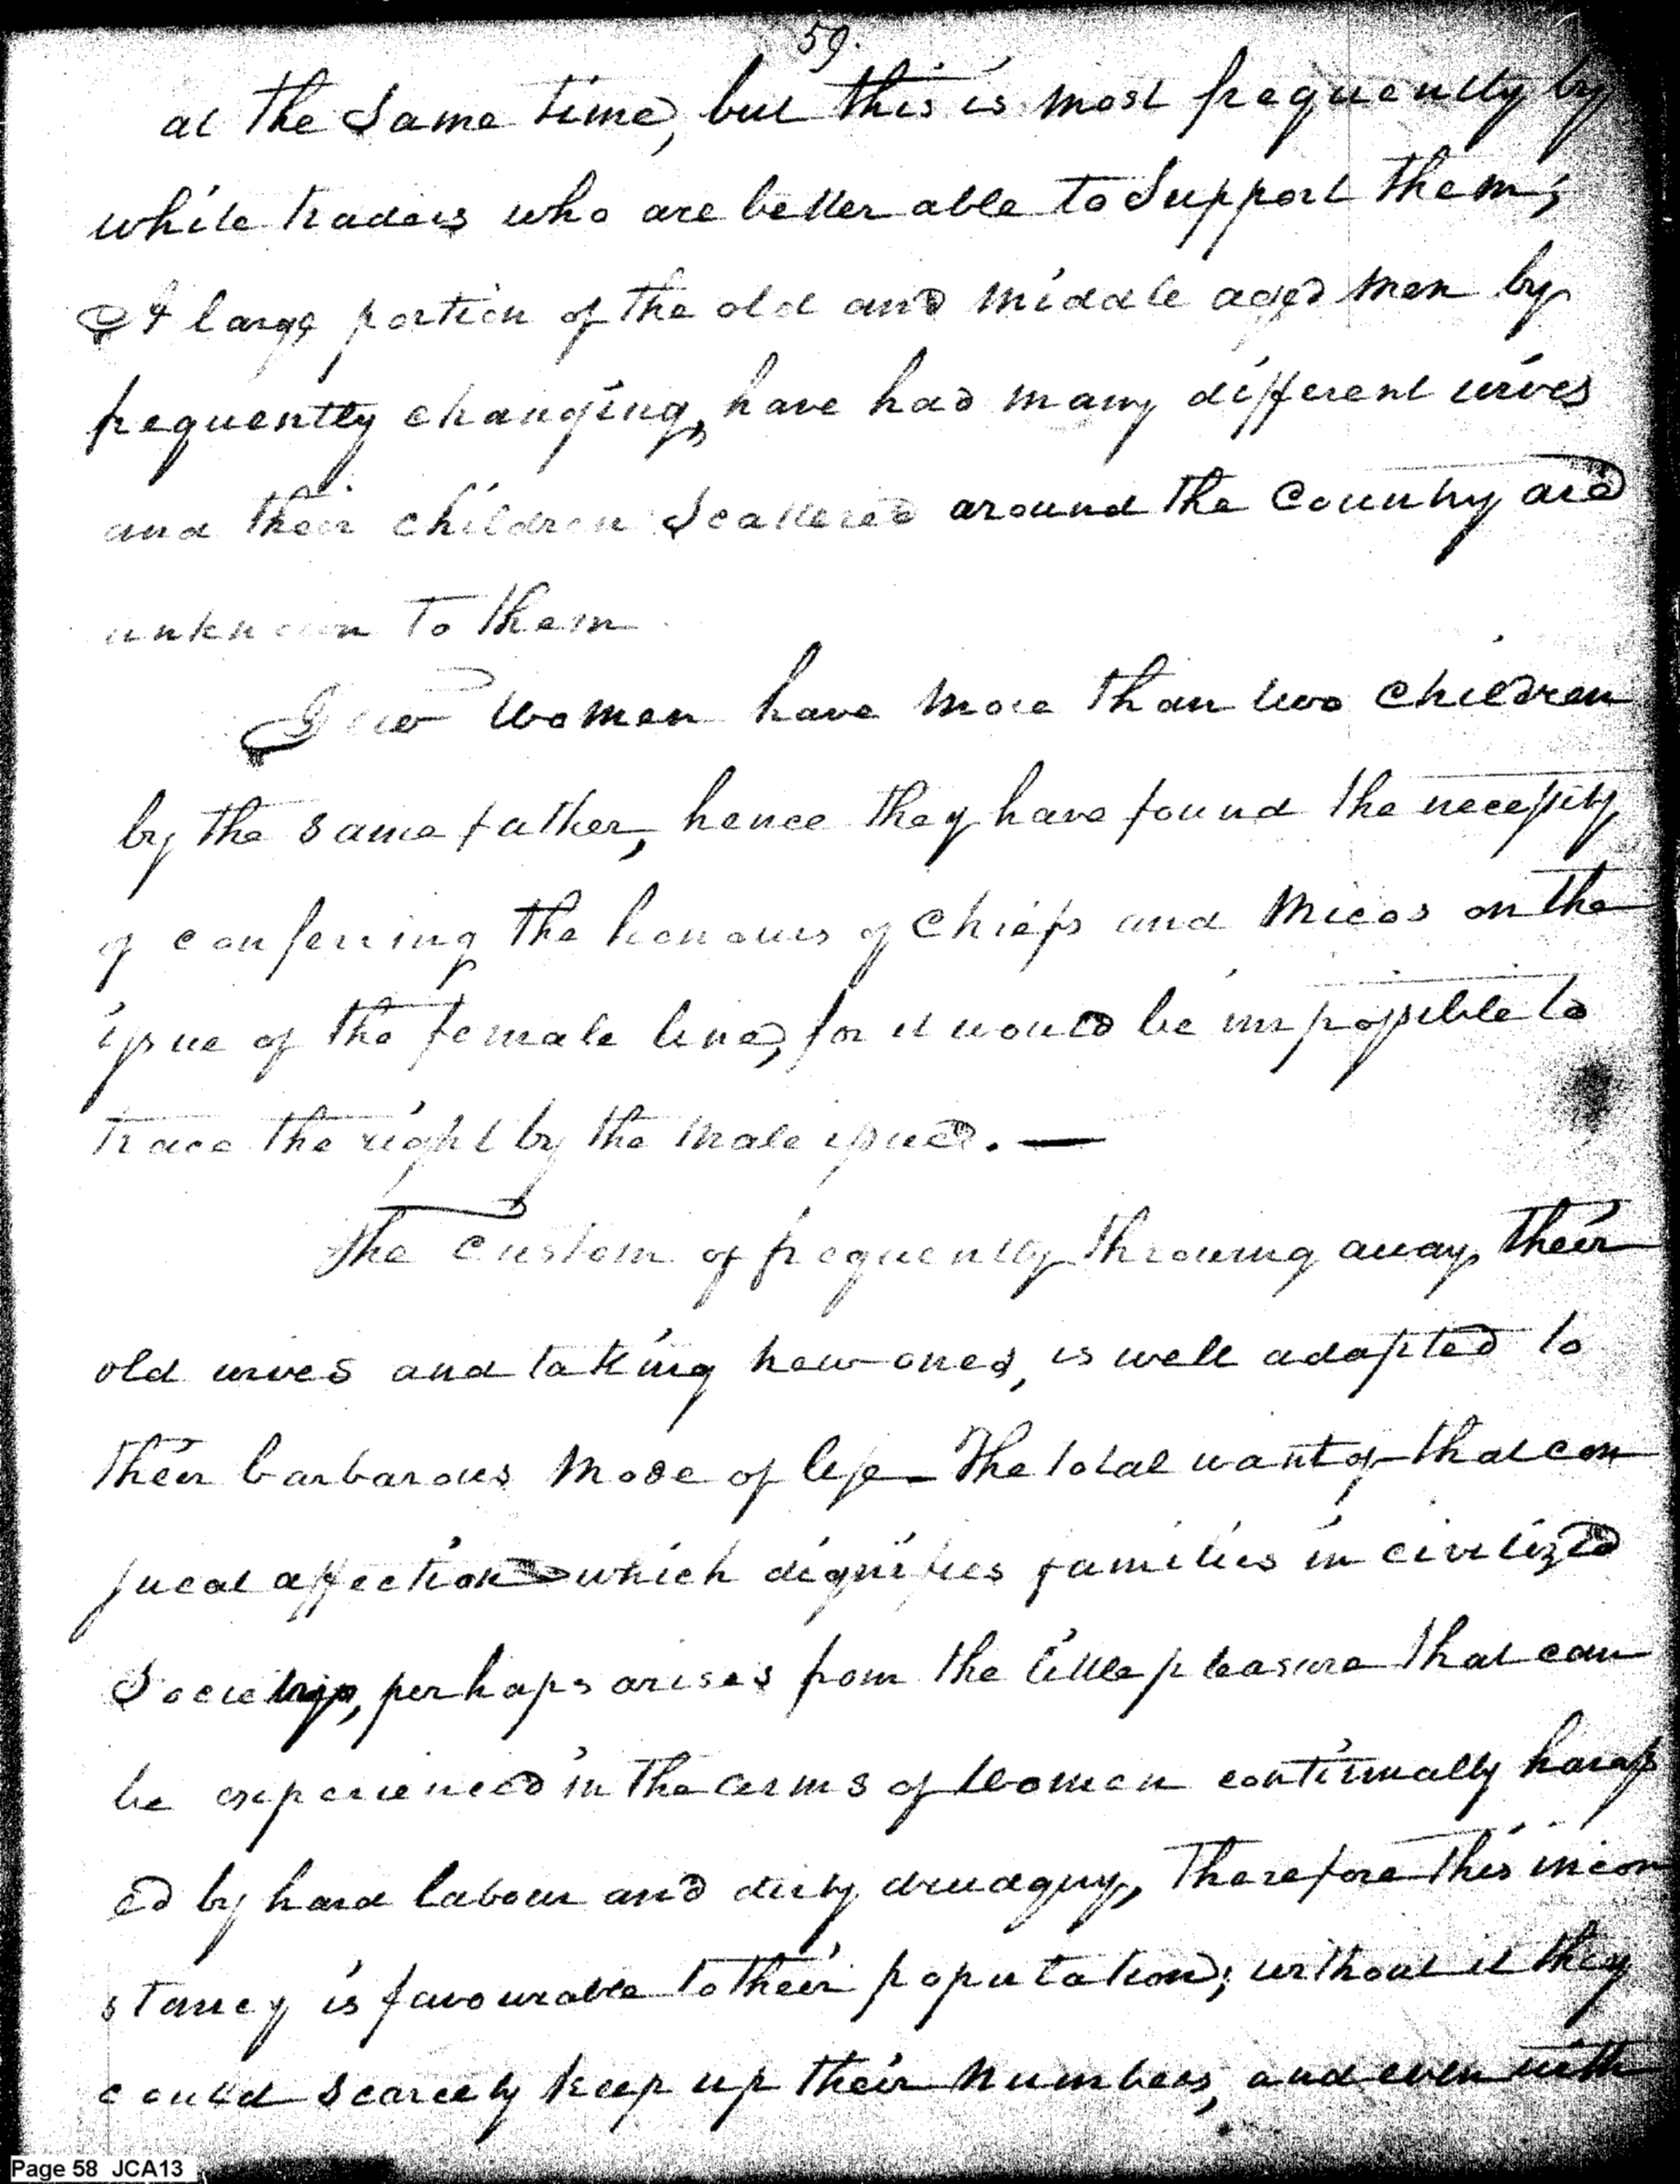 59.
at the Same time, but this is most frequently by
white traders who are better able to Support them;
A large portion of the old and middle aged men by
frequently changing, have had many different wives
and their children Scattered around the Country are
unknown to them
Few Women have more than two children
by the same father, hence they have found the necessity
of conferring the honours of Chiefs and Micos on the
issue of the female line, for it would be impossible to
trace the right by the male issue. —
The custom of frequently throwing away their
old wives and taking new ones, is well adapted to
their barbarous mode of life — The total want of that con
jucal affection which dignifies families in civilized
Society, perhaps arises from the little pleasure that can
be experienced in the arms of Women continually harass
ed by hard labour and dirty drudgery, Therefore this incon
stancy is favourable to their population; without it they
could scarcely keep up their numbers, and even with
Page 58 JCA13